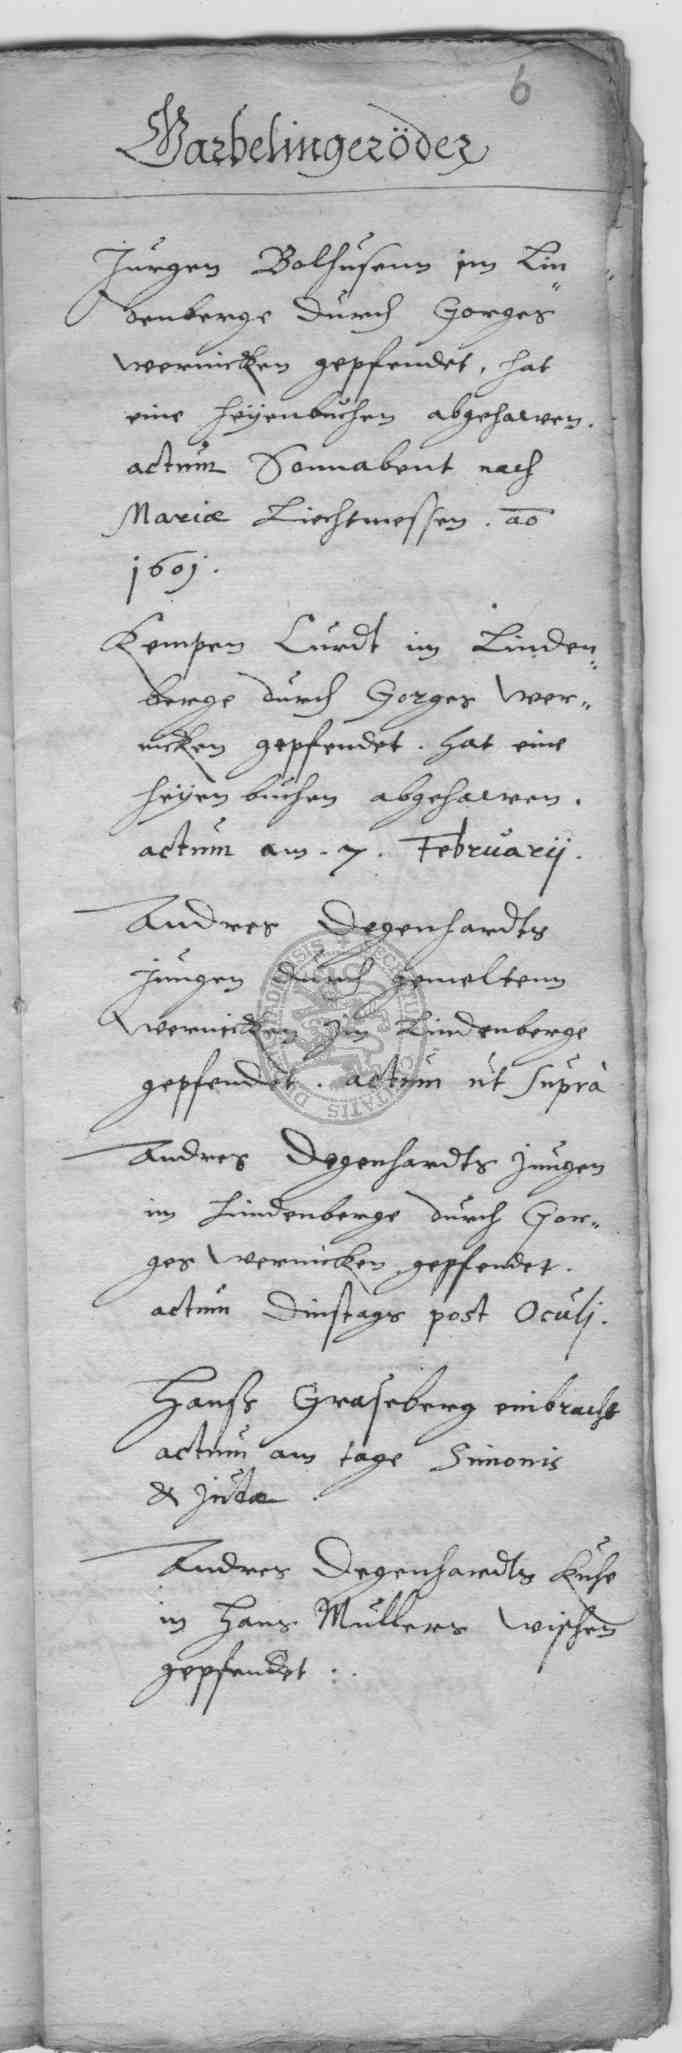 6
Warbelingeröder
Jurgen Bolhusenn im Lin„
denberge durch Gorges
Wernicken gepfendet, hat
eine heyenbuchen abgehawen.
actum Sonnabent nach
Mariæ Liechtmessen. ao
1601.
Kempen Curdt im Linden„
berge durch Gorges Wer„
nicken gepfendet. hat eine
heyen buchen abgehawen.
actum am. 7. Februarij.
Andres Degenhardts
jungen durch gemeltenn
Wernicken im Lindenberge
gepfendet. actum ut suprà
Andres Degenhardts jungen
im Lindenberge durch Gor„
ges Wernicken gepfendet.
actum Dinstags post Oculj.
Hanß Graseberg einbracht
actum am tage Simonis
& Judæ.
Andres Degenhardts Kuhe
in Hans Mullers Wischen
gepfendet.